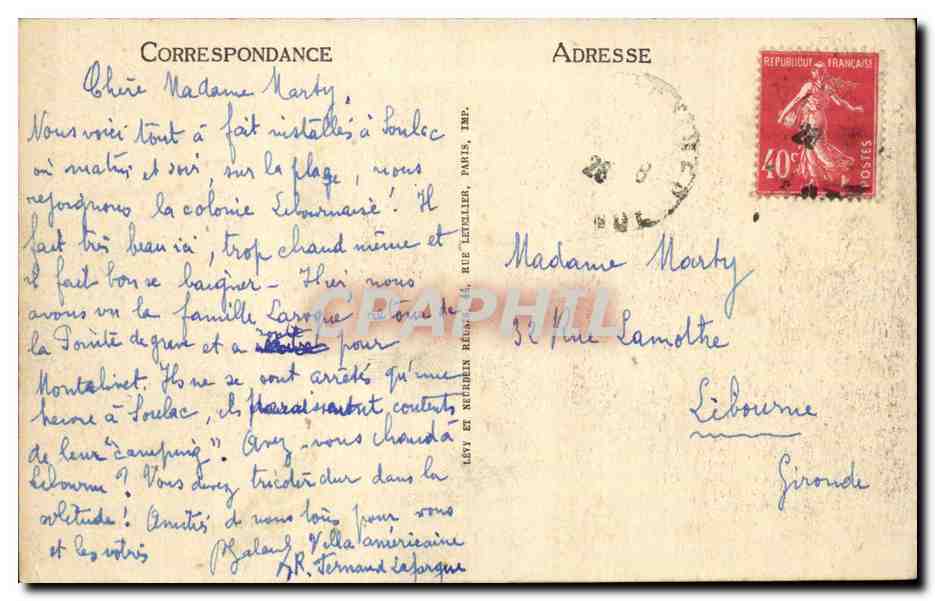 CORRESPONDANCE
Chère Madame Marty,
Nous voici tout à fait installés à Soulac
où matin et soir, sur la plage, nous
rejoignons la colonie Libournaise! Il
fait très beau ici, trop chaud même et
il fait bon se baigner - Hier nous
avons vu la famille Laroque
la Pointe de grave et a pour
Montalivet. Ils ne se sont arrêtés qu'une
heure à Soulac, ils paraissent contents
de leur "camping". Avez-vous chaud à
Libourne? Vous devez tricoter dur dans la
solitude! Amitiés de nous tous pour vous
et les vôtres
Villa américaine
R. Fernand Lafargue
LÉVY ET NEURDEIN RÉUNIS, 44, RUE LETELLIER, PARIS, IMP.
ADRESSE
REPUBLIQUE FRANÇAISE
40c
POSTES
28 8
Madame Marty
32 Rue Lamothe
Libourne
Gironde
CPAPHIL